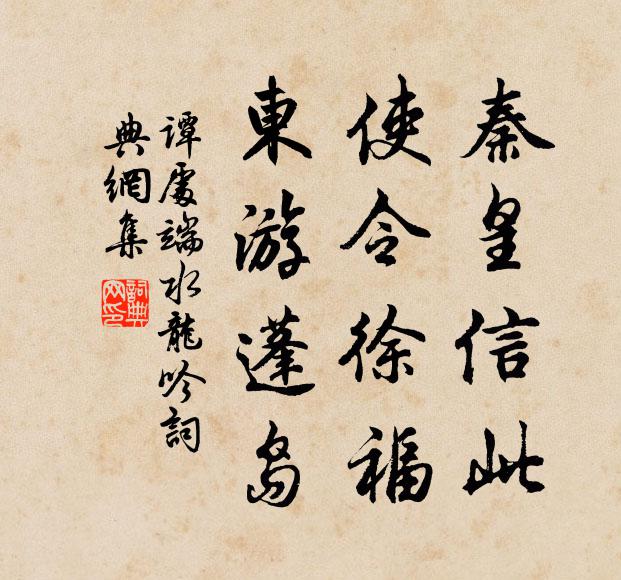 秦皇信此
使令徐福
東游蓬島
谭處端水龍吟詞
典網集
詞典網印